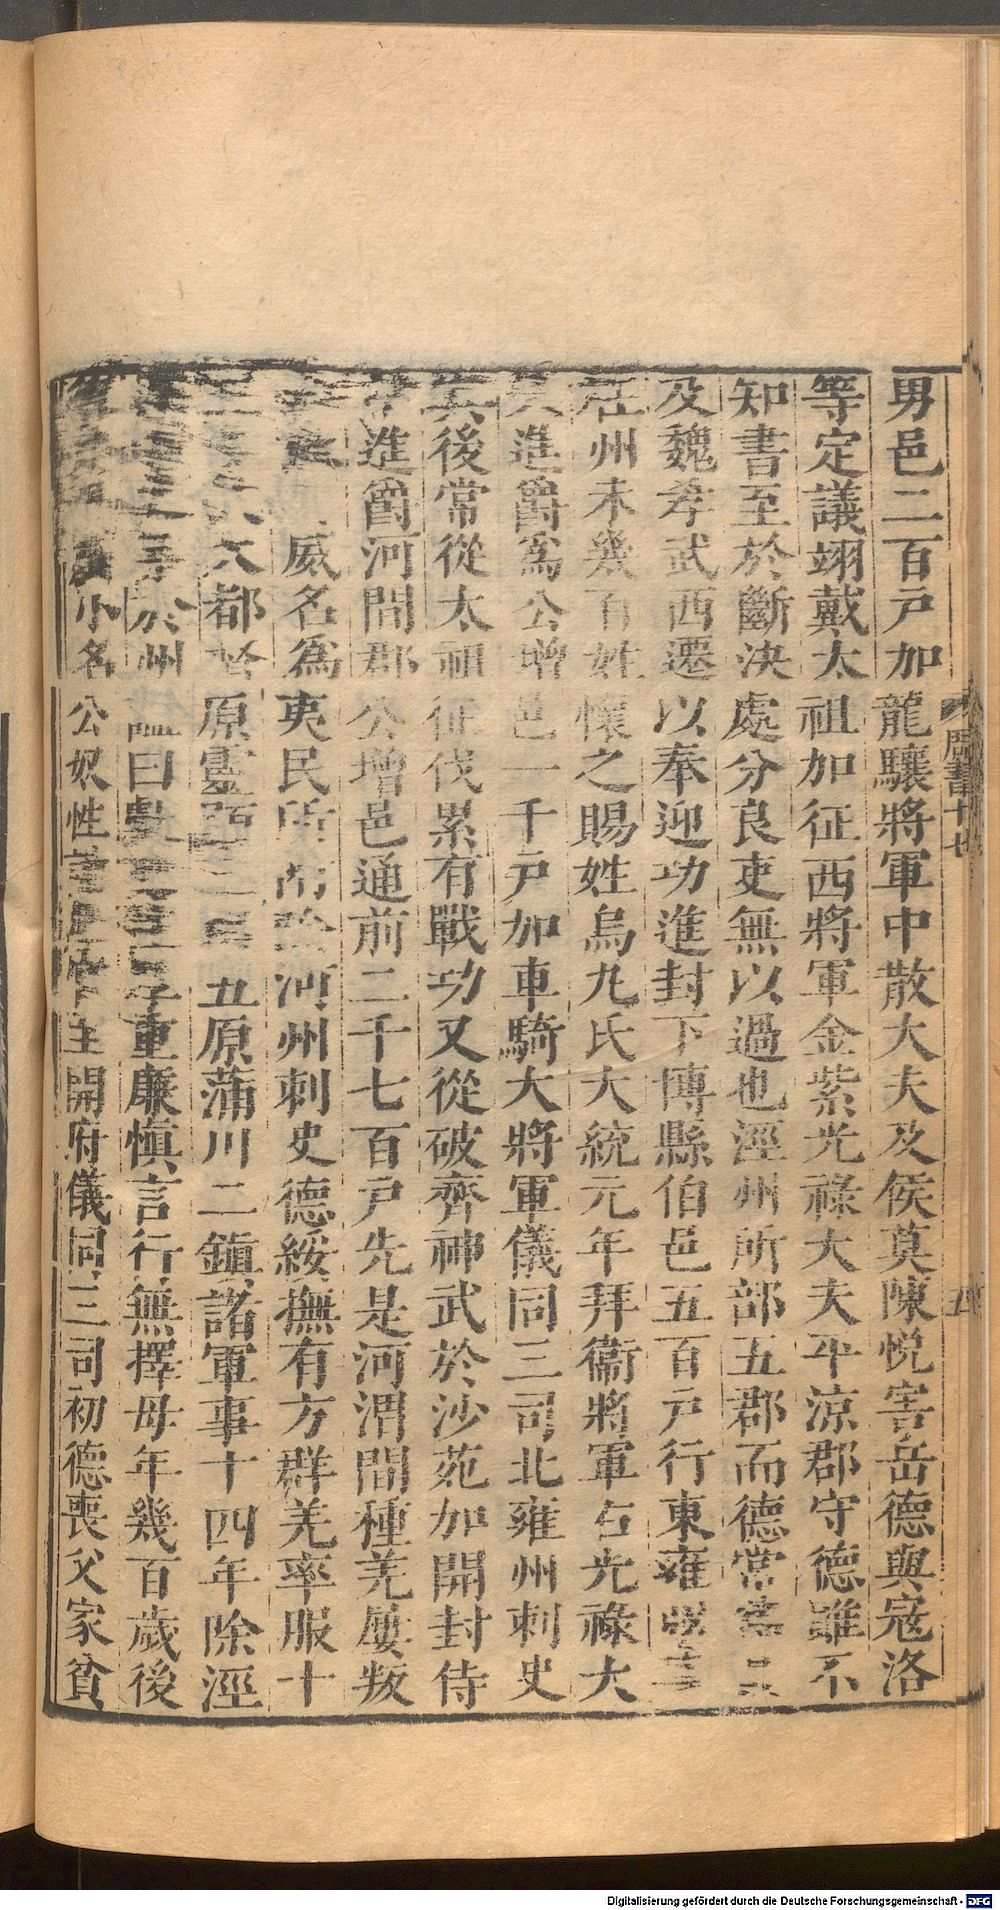 男邑二百戸加龍驤將軍中散大夫及侯莫陳悅害岳德與寇洛
等定議翊戴太祖加征西將軍金紫光祿大夫平涼郡守德雖不
知書至於斷決處分良吏無以過也涇州所部五郡而德常
及魏孝武西遷以奉迎功進封下博縣伯邑五百戸行東雍
在州未幾百姓懷之賜姓烏丸氏大統元年拜衞將軍右光祿大
夫進爵爲公增邑一千戸加車騎大將軍儀同三司北雍州刺史
其後常從太祖征伐累有戰功又從破齊神武於沙苑加開封侍
中進爵河間郡公增邑通前二千七百戸先是河渭間種羌屢叛
威名爲夷民所 河州刺史德綏撫有方群羌率服十
大都 原靈 五原蒲川二鎮諸軍事十四年除涇
於州 諡曰 重廉愼言行無擇母年幾百歲後
小名公奴性 開府儀同三司初德喪父家貧
周書十七
五
Digitalisierung gefördert durch die Deutsche Forschungsgemeinschaft - DFG